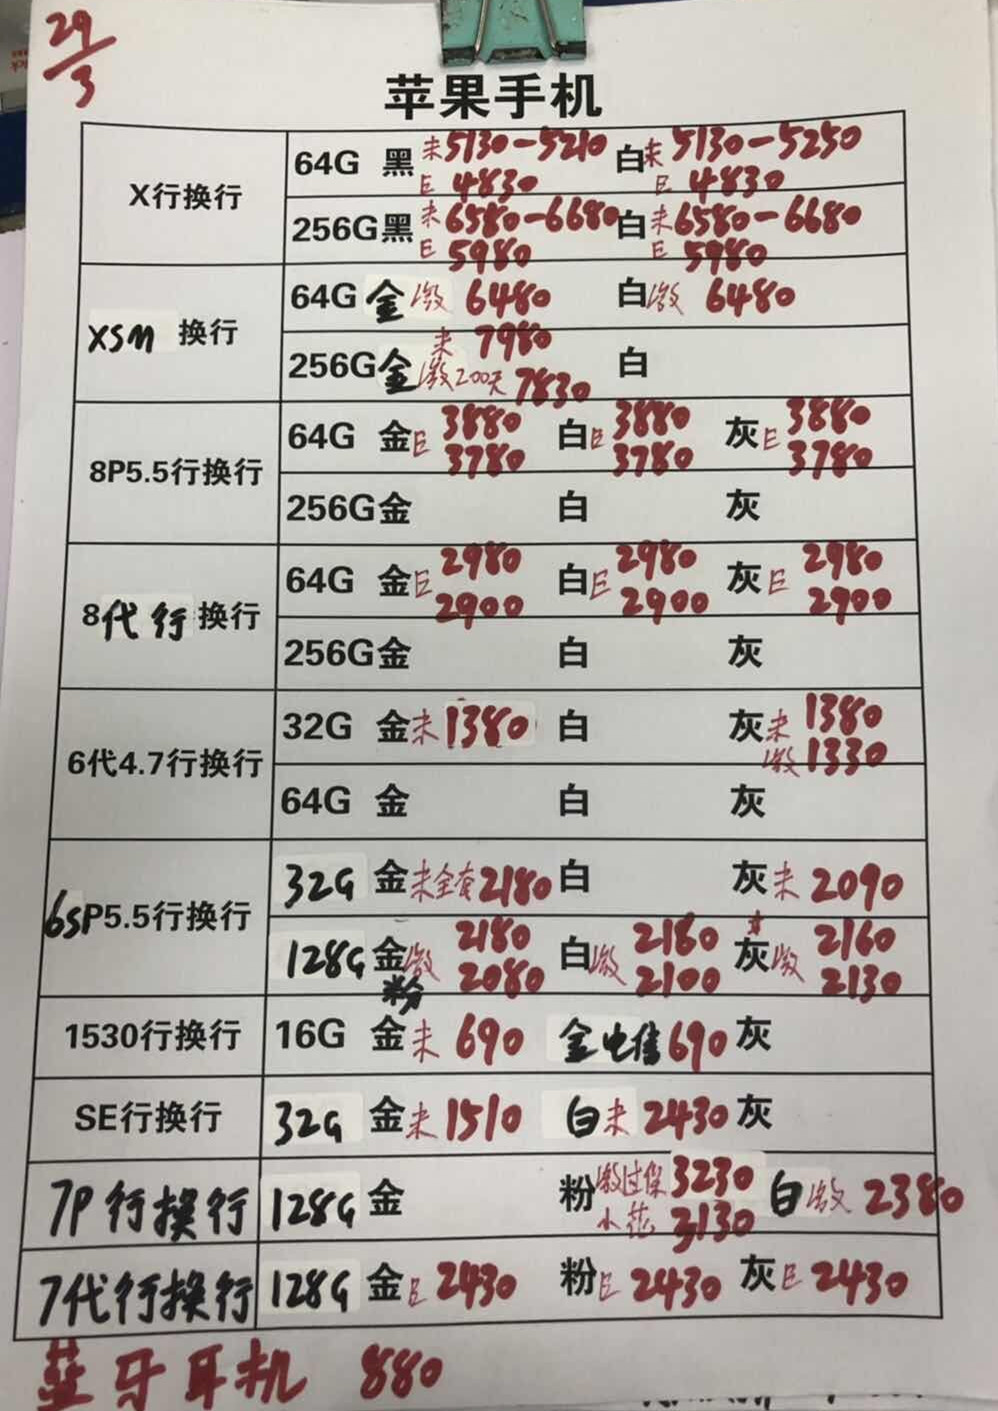 29/3
苹果手机
X行换行
64G 黑 未5130-5210 白 未5130-5250
E 4830 E 4830
256G黑 未6580-6680 白 未6580-6680
E 5980 E 5980
XSM 换行
64G 金 激 6480 白 激 6480
未 7980
256G 金 激200天 7830 白
8P5.5行换行
64G 金 E 3880 白 E 3880 灰 E 3880
3780 3780 3780
256G金 白 灰
8代行换行
64G 金 E 2980 白 E 2980 灰 E 2980
2900 2900 2900
256G金 白 灰
6代4.7行换行
32G 金 未 1380 白 灰 未 1380
激 1330
64G 金 白 灰
6SP5.5行换行
32G 金 未全套2180 白 灰 未 2090
128G 金 激 2180 白 激 2160 灰 激 2160
粉 2080 2100 2130
1530行换行
16G 金 未 690 金 电信 690 灰
SE行换行
32G 金 未 1510 白 未 2430 灰
7P行换行
128G 金 粉 激过保 3230 白 激 2380
小花 3130
7代行换行
128G 金 E 2430 粉 E 2430 灰 E 2430
蓝牙耳机 880